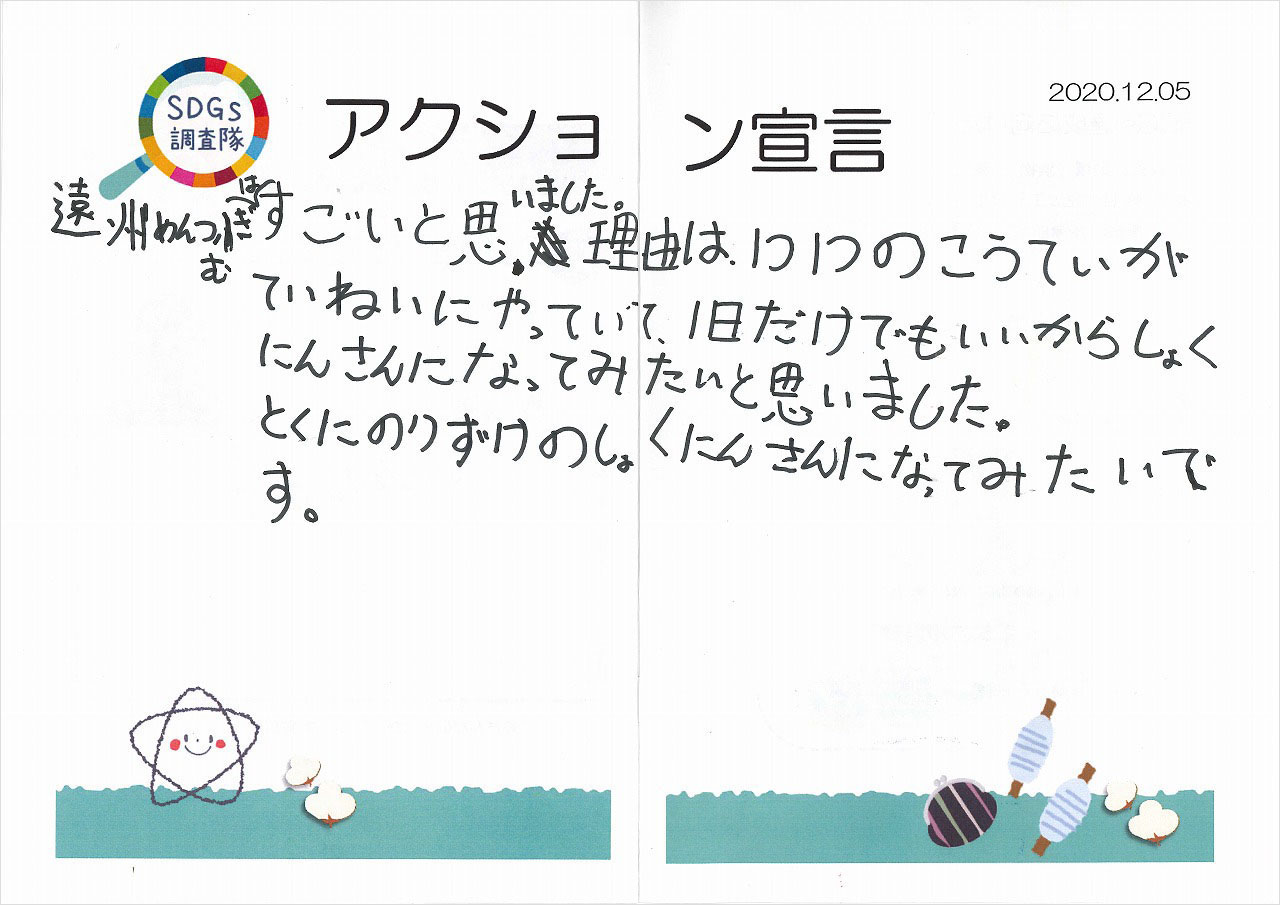 SDGs
調査隊
アクション宣言
2020.12.05
遠州めんつむぎはすごいと思いました。理由は、1つ1つのこうていが
ていねいにやっていて、1日だけでもいいからしょく
にんさんになってみたいと思いました。
とくにのりずけのしょくにんさんになってみたいで
す。